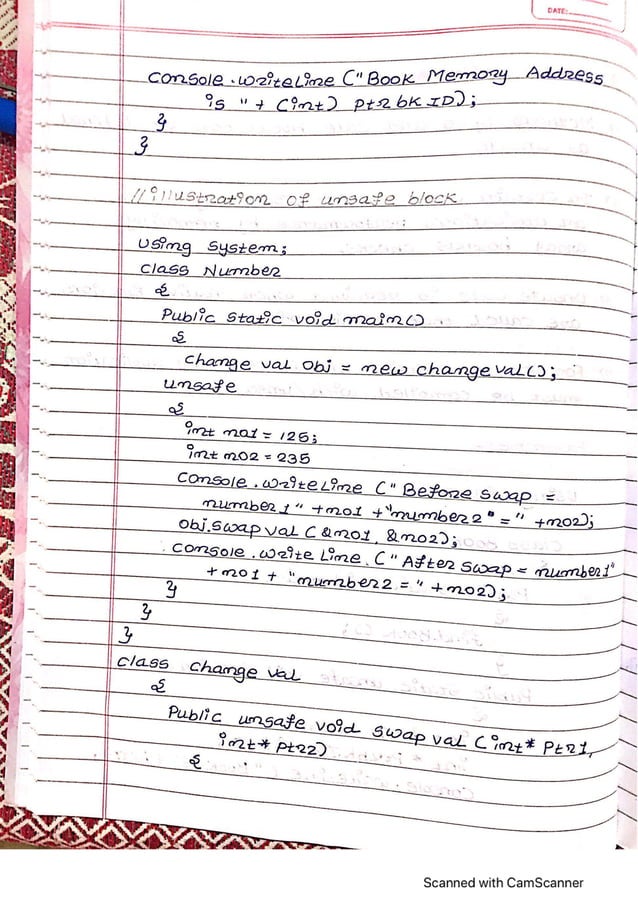 DATE:
Console.writeLine ("Book Memory Address
is " + (int) ptr bk ID);
}
}
//illustration of unsafe block
using system;
class Number
{
Public static void main()
{
change val obj = new change val();
unsafe
{
int no1 = 125;
int no2 = 235
Console.writeLine ("Before swap =
number1" +no1 +"number2"=" +no2);
obj.swap val (&no1, &no2);
console.write Line ("After swap = number1"
+no1 + "number2 = " +no2);
}
}
}
class change val
{
Public unsafe void swap val (int* Ptr1,
int* ptr2)
{
Scanned with CamScanner